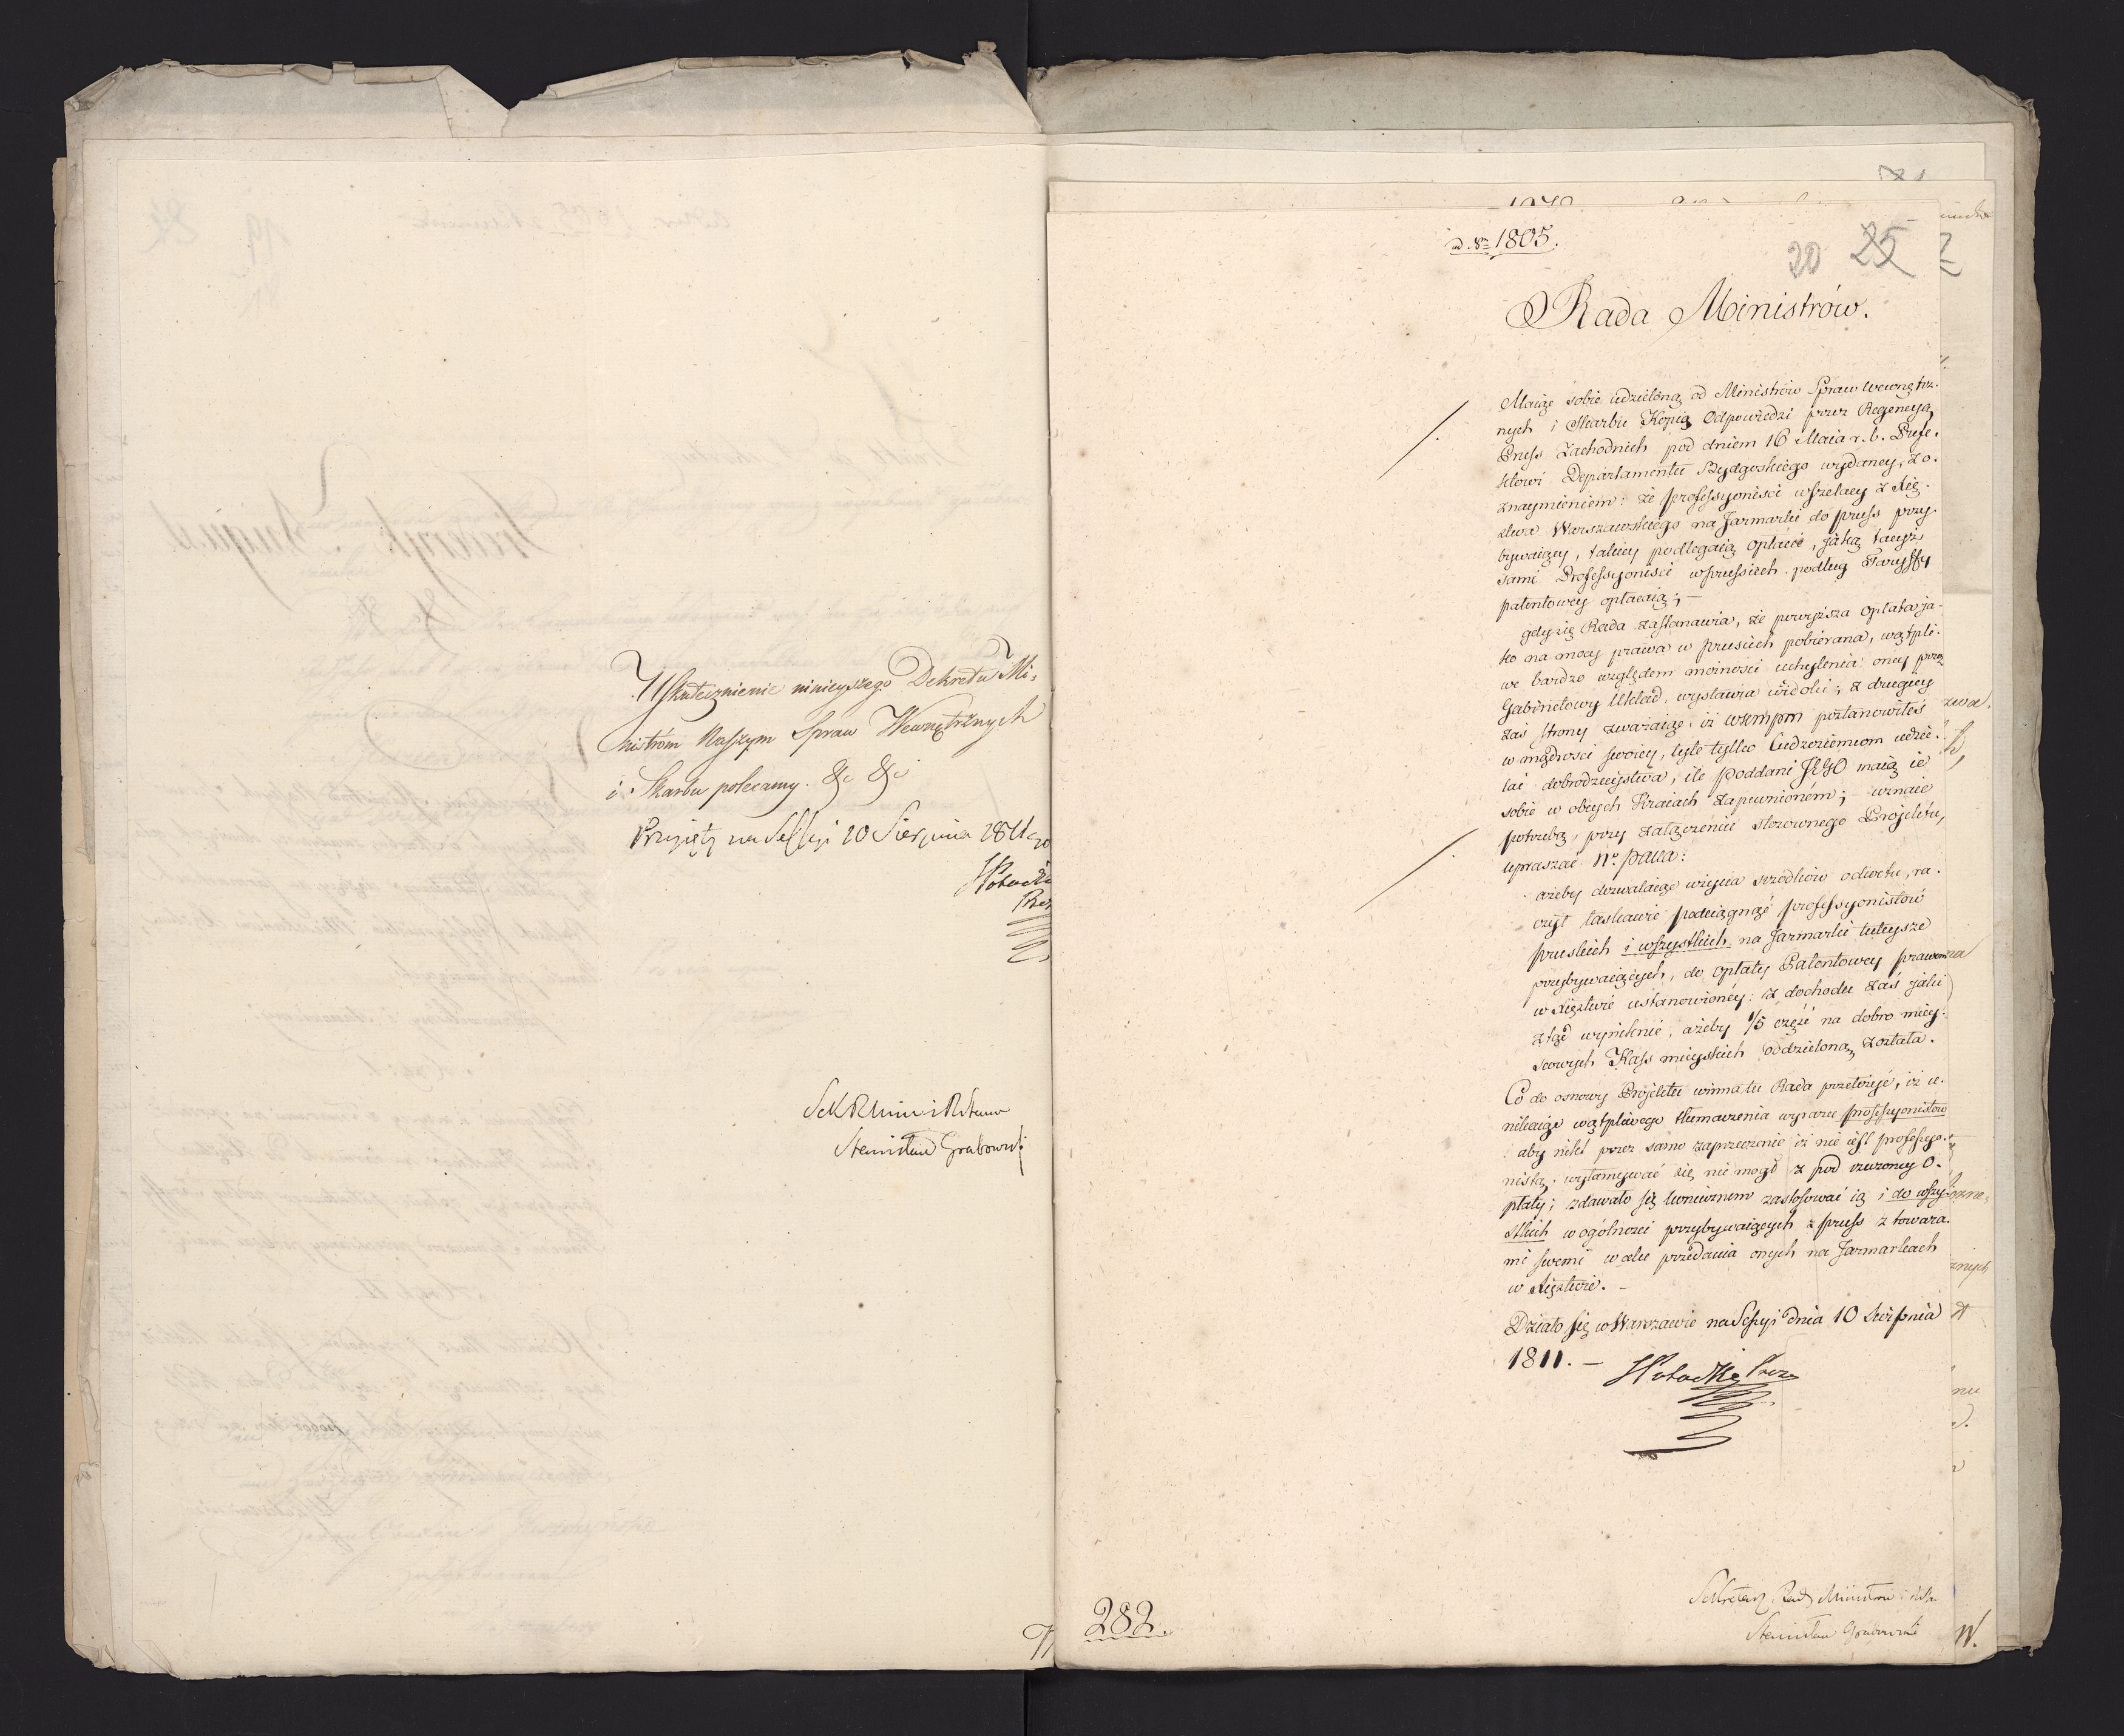 Uskutecznienie ninieyszego Dekretu Mi-
nistrom Naszym Spraw Wewnętrznych
i Skarbu polecamy. &c &c
Przyięty na Sessyi 10 Sierpnia 1811
Stanisław Grabowski
ad Nm 1805.
20 25
Rada Ministrów.
Maiąc sobie udzieloną od Ministrów Spraw wewnętrz-
nych i Skarbu Kopią Odpowiedzi przez Regencyą
Pruss Zachodnich pod dniem 16 Maia r. b. Prefe-
ktowi Departamentu Bydgoskiego wydaney, z o-
znaymieniem: że professyoniści wszelacy z Xię-
stwa Warszawskiego na Jarmarki do pruss przy-
bywaiący, takiey podlegaią opłacie, jaką tacyż
sami Professyoniści w prussiech podług Taryffy
patentowey opłacaią; —
gdy się Rada zastanawia, że powyższa opłata ja-
ko na mocy prawa w prusiech pobierana, wątpli-
we bardzo względem możności uchylenia oney przez
Gabinetowy Układ, wystawia widoki; z drugiey
zaś strony zważaiąc, iż WKMPan postanowiłeś
w mądrości swoiey, tyle tylko Cudzoziemcom udzie-
lać dobrodzieystwa, ile poddani JEGO maią ie
sobie w obcych Kraiach zapewnioném; — uznaie
potrzebą, przy załączeniu stosownego Projektu,
upraszać N: pana:
ażeby dozwalaiąc użycia srzodków odwetu, ra-
czył łaskawie podciągnąć professyonistów
pruskich i wszystkich na Jarmarki tuteysze
przybywaiących, do opłaty Patentowey prawem
w Xięztwie ustanowioney: z dochodu zaś jaki
ztąd wyniknie, ażeby 1/5 część na dobro miey-
scowych Kass mieyskich oddzieloną została.
Co do osnowy Projektu winna tu Rada przełożyć, iż u-
nikaiąc wątpliwego tłumaczenia wyrazu professyonistów
aby nikt przez samo zaprzeczenie iż nie iest professyo-
nistą, wyłamywać się nie mógł z pod rzeczoney O-
płaty; zdawało się koniecznem zastosować ią i do wszy-
stkich w ogólności przybywaiących z pruss z towara-
mi swemi w celu przedania onych na Jarmarkach
w Xięztwie. —
Działo się w Warszawie na Sessyi dnia 10 Sierpnia
1811. —
Sekretarz Rady Ministrów
Stanisław Grabowski
282.